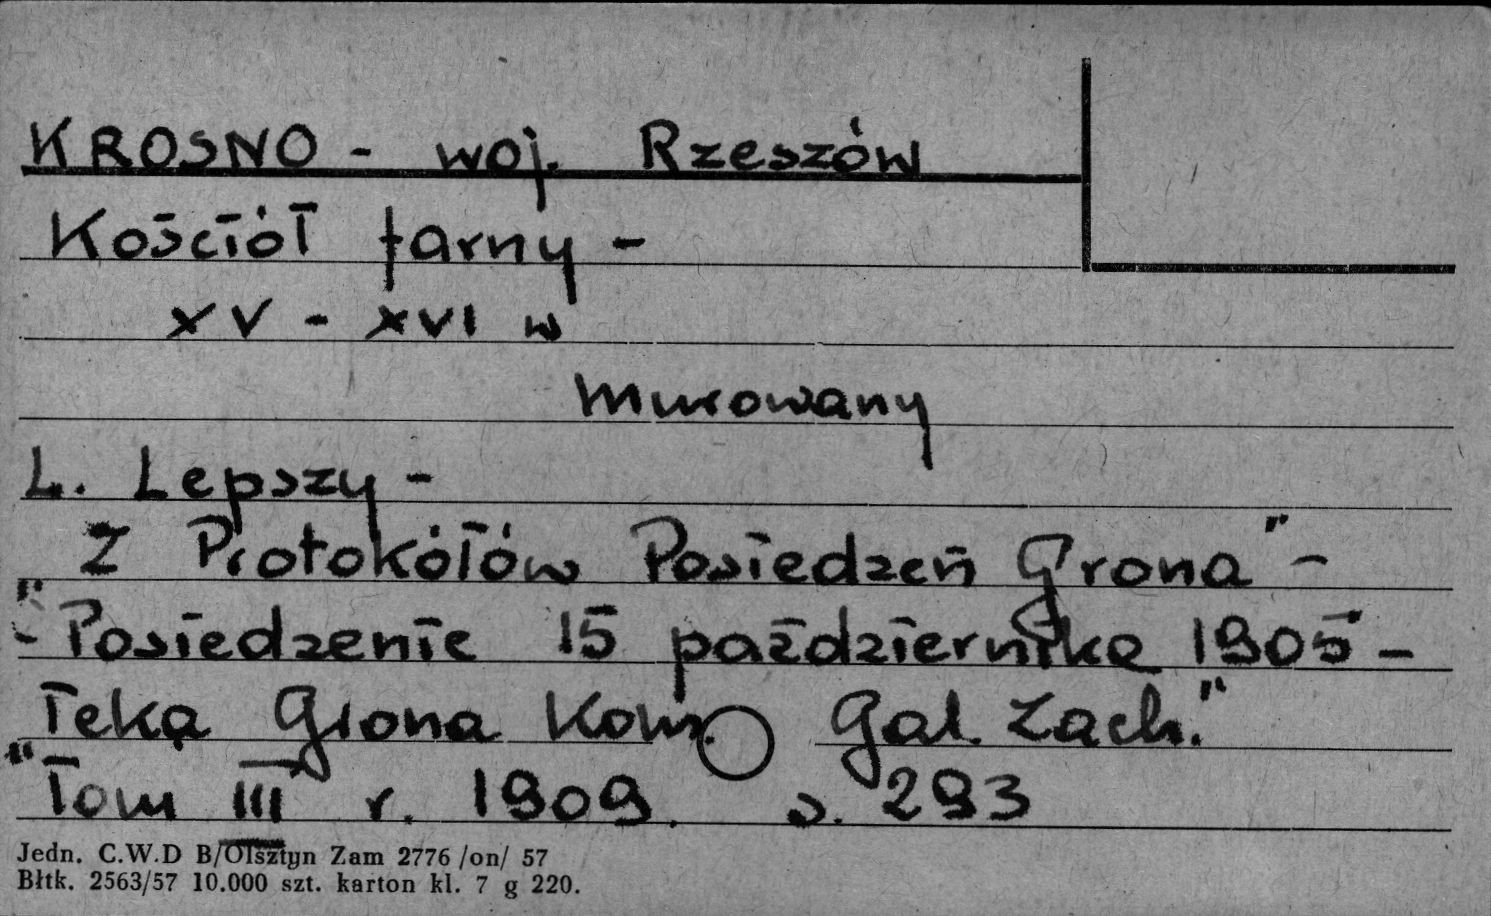 KROSNO - woj. Rzeszów
Kościół farny -
XV - XVI w
Murowany
L. Lepszy -
Z Protokółów Posiedzeń Grona" -
"- Posiedzenie 15 października 1905 -
Teka Grona Kons. Gal. Zach."
"Tom III r. 1909. s. 293
Jedn. C.W.D B/Olsztyn Zam 2776 /on/ 57
Błtk. 2563/57 10.000 szt. karton kl. 7 g 220.